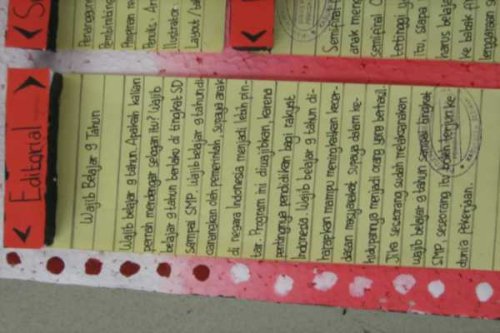 Editorial
Wajib Belajar 9 Tahun
Wajib belajar 9 tahun. Apakah kalian
pernah mendengar selogan itu? Wajib
belajar 9 tahun berlaku di tingkat SD
sampai SMP. Wajib belajar 9 tahun di
canangkan oleh pemerintah. Supaya anak
di negara Indonesia menjadi lebih pin-
tar. Program ini diwajibkan, karena
pentingnya pendidikan bagi rakyat
Indonesia. Wajib belajar 9 tahun di-
harapkan mampu meningkatkan kecer-
dasan masyarakat, supaya dalam ke-
hidupannya menjadi orang yang berhasil.
Jika seseorang sudah melaksanakan
wajib belajar 9 tahun sampai tingkat
SMP, seseorang itu boleh terjun ke
dunia pekerjaan.
Penanggung
Pembimbing
Pimpinan re
Penulis : Am
Ilustrator :
Layout
Semifinal
anak meng
semifinal C
tertinggi y
itu, siapa
harus belaj
ke babak fi